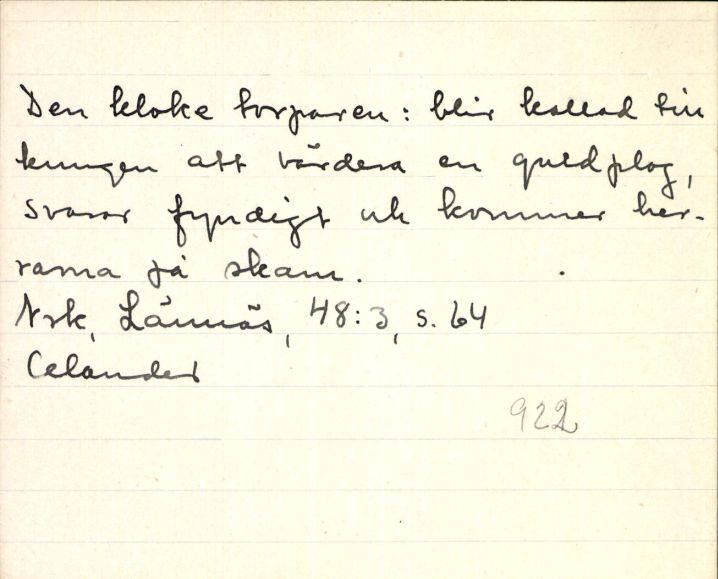 Den kloke torparen: blir kallad till
kungen att värdera en guldplog,
svarar fyndigt och kommer her-
rarna på skam.
Nrk, Lännäs, 48:3, s. 64
Celander
922